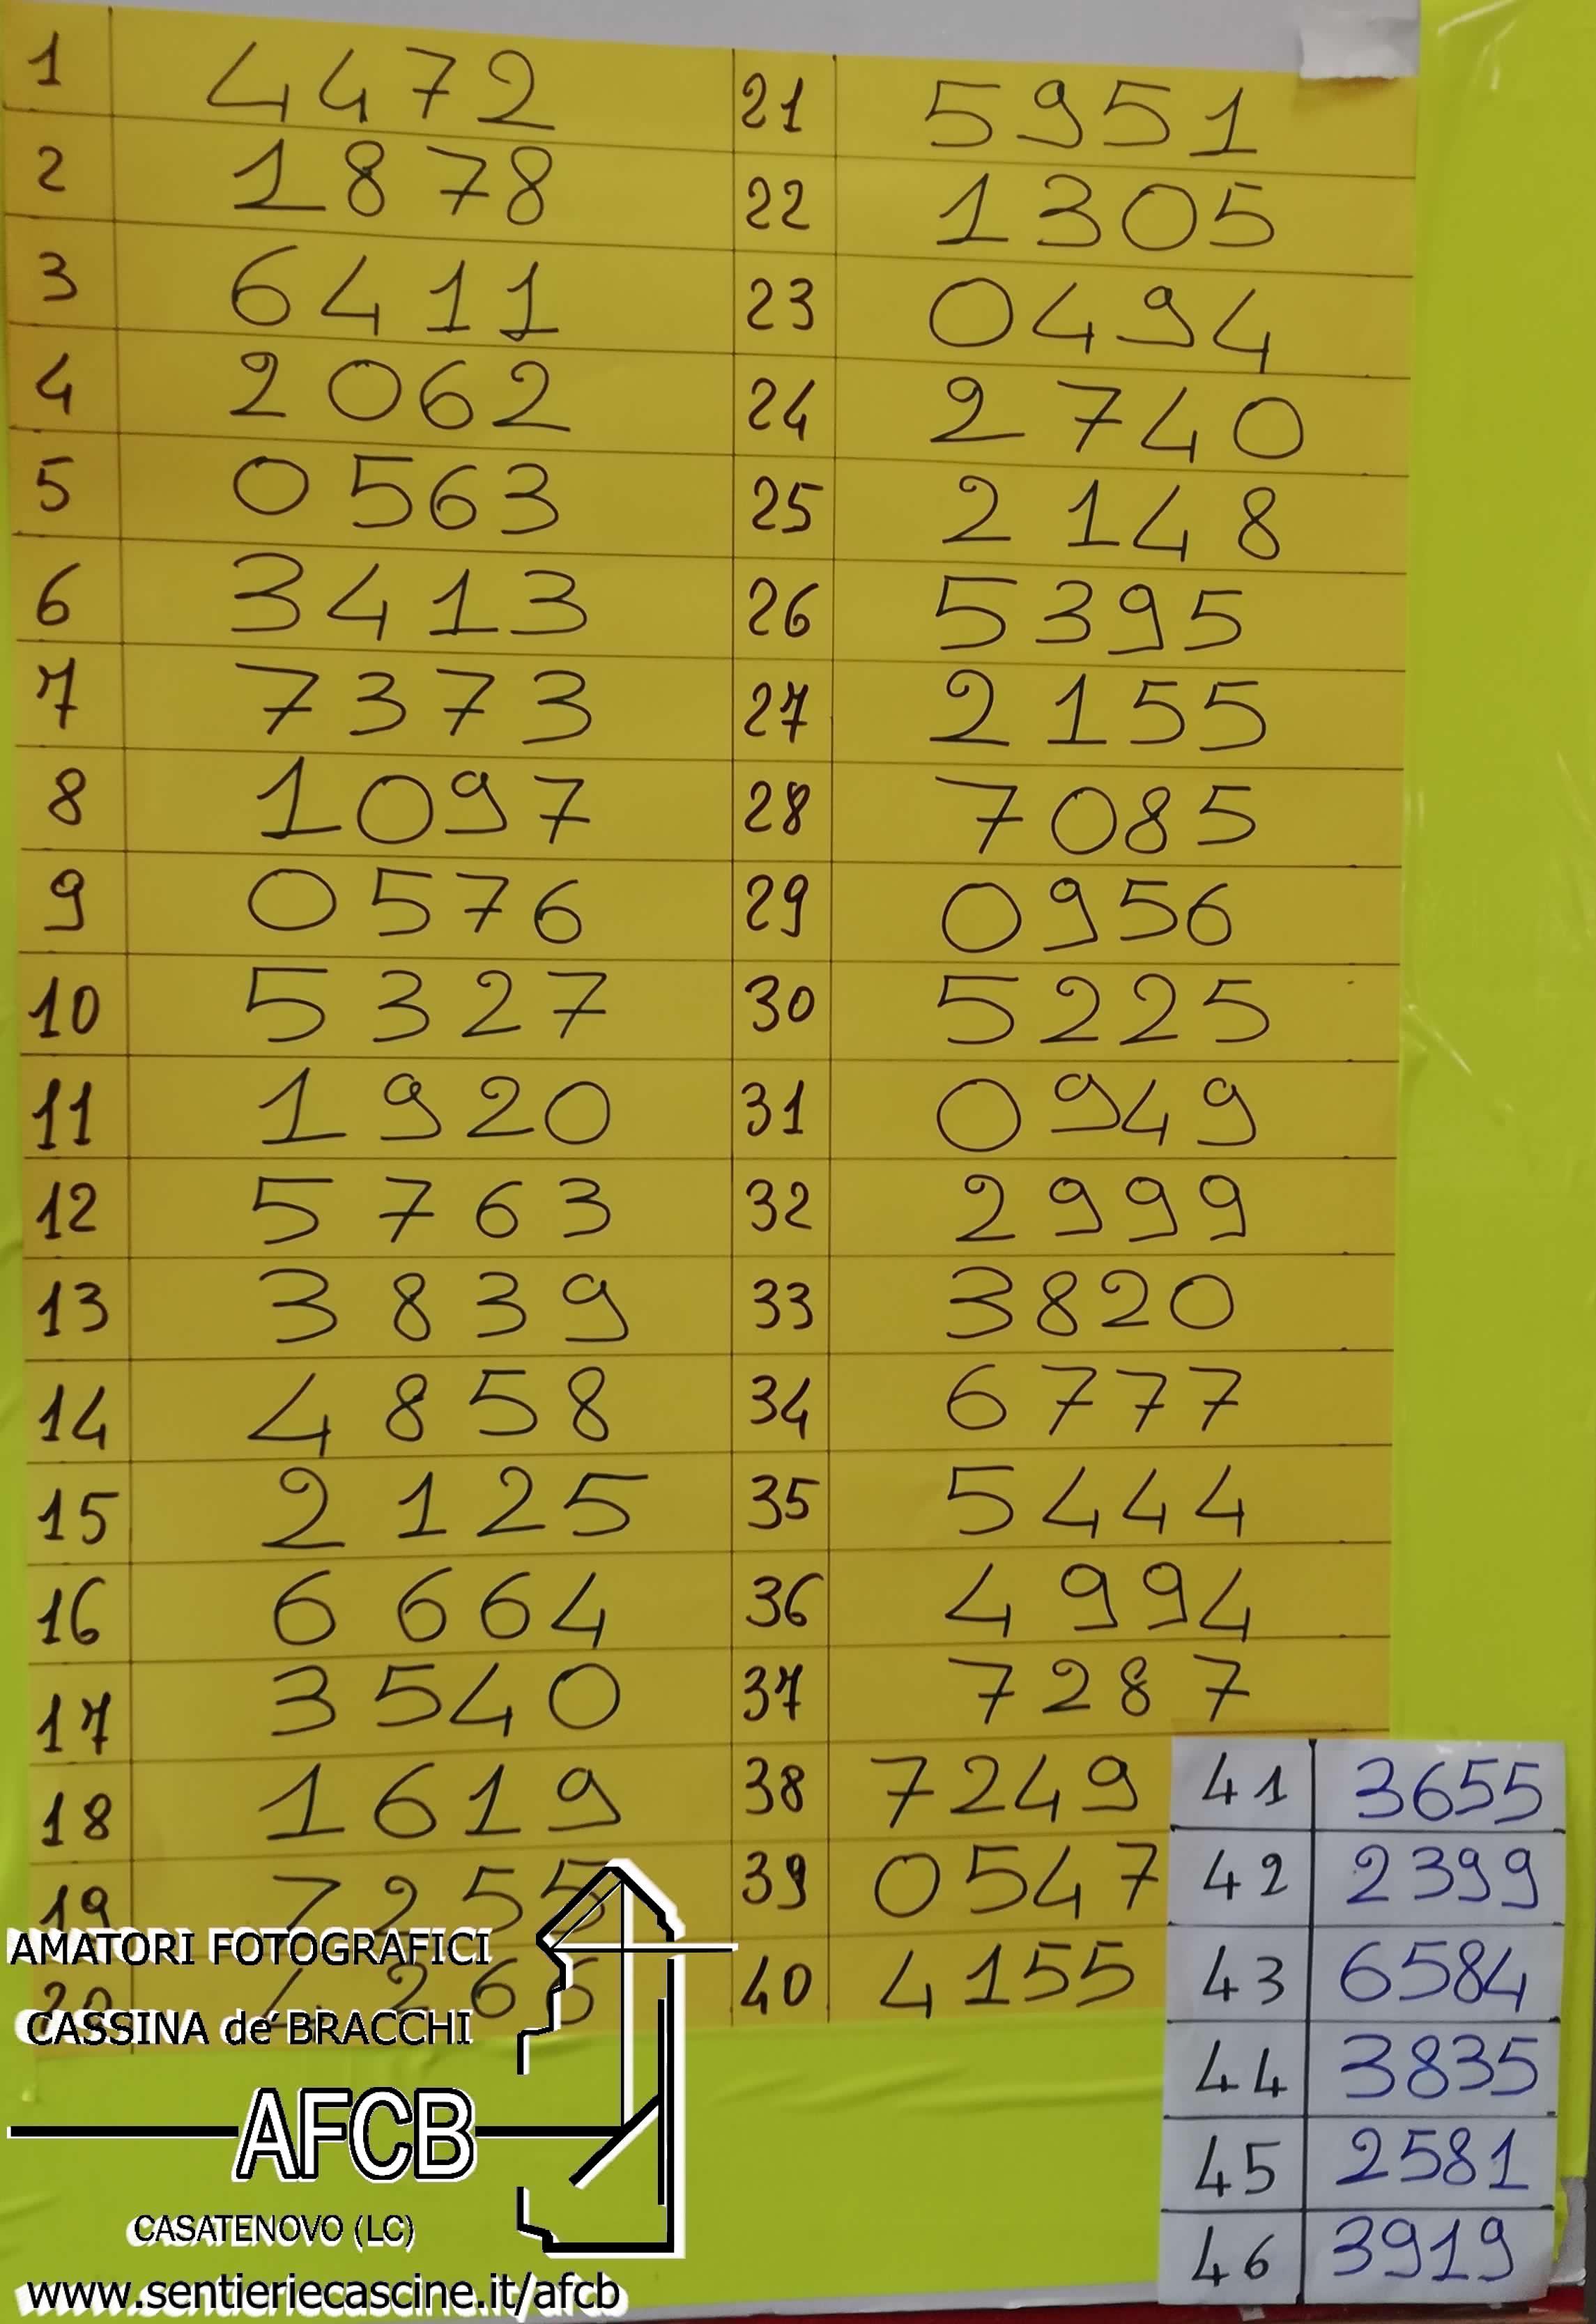 1 4472
2 1878
3 6411
4 2062
5 0563
6 3413
7 7373
8 1097
9 0576
10 5327
11 1920
12 5763
13 3839
14 4858
15 2125
16 6664
17 3540
18 1619
19 7255
20
21 5951
22 1305
23 0494
24 2740
25 2148
26 5395
27 2155
28 7085
29 0956
30 5225
31 0949
32 2999
33 3820
34 6777
35 5444
36 4994
37 7287
38 7249
39 0547
40 4155
41 3655
42 2399
43 6584
44 3835
45 2581
46 3919
AMATORI FOTOGRAFICI
CASSINA de' BRACCHI
AFCB
CASATENOVO (LC)
www.sentieriecascine.it/afcb